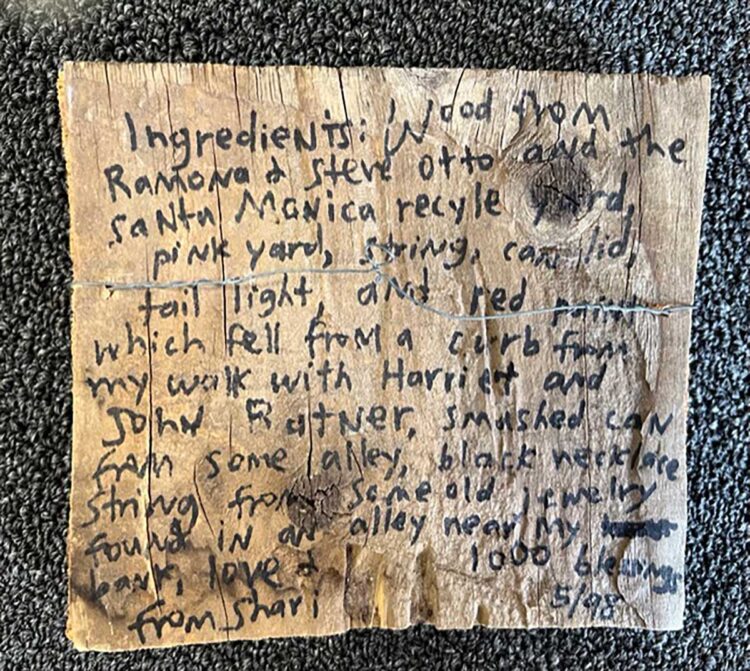 Ingredients: Wood from
Ramona & Steve Otto and the
Santa Monica recyle yard,
pink yard, string, can lid,
tail light, and red paint
which fell from a curb from
my walk with Harriet and
John Ratner, smashed can
from some alley, black necklace
string from some old jewelry
found in an alley near my
bank, love & 1000 blessings
from Shari 5/98